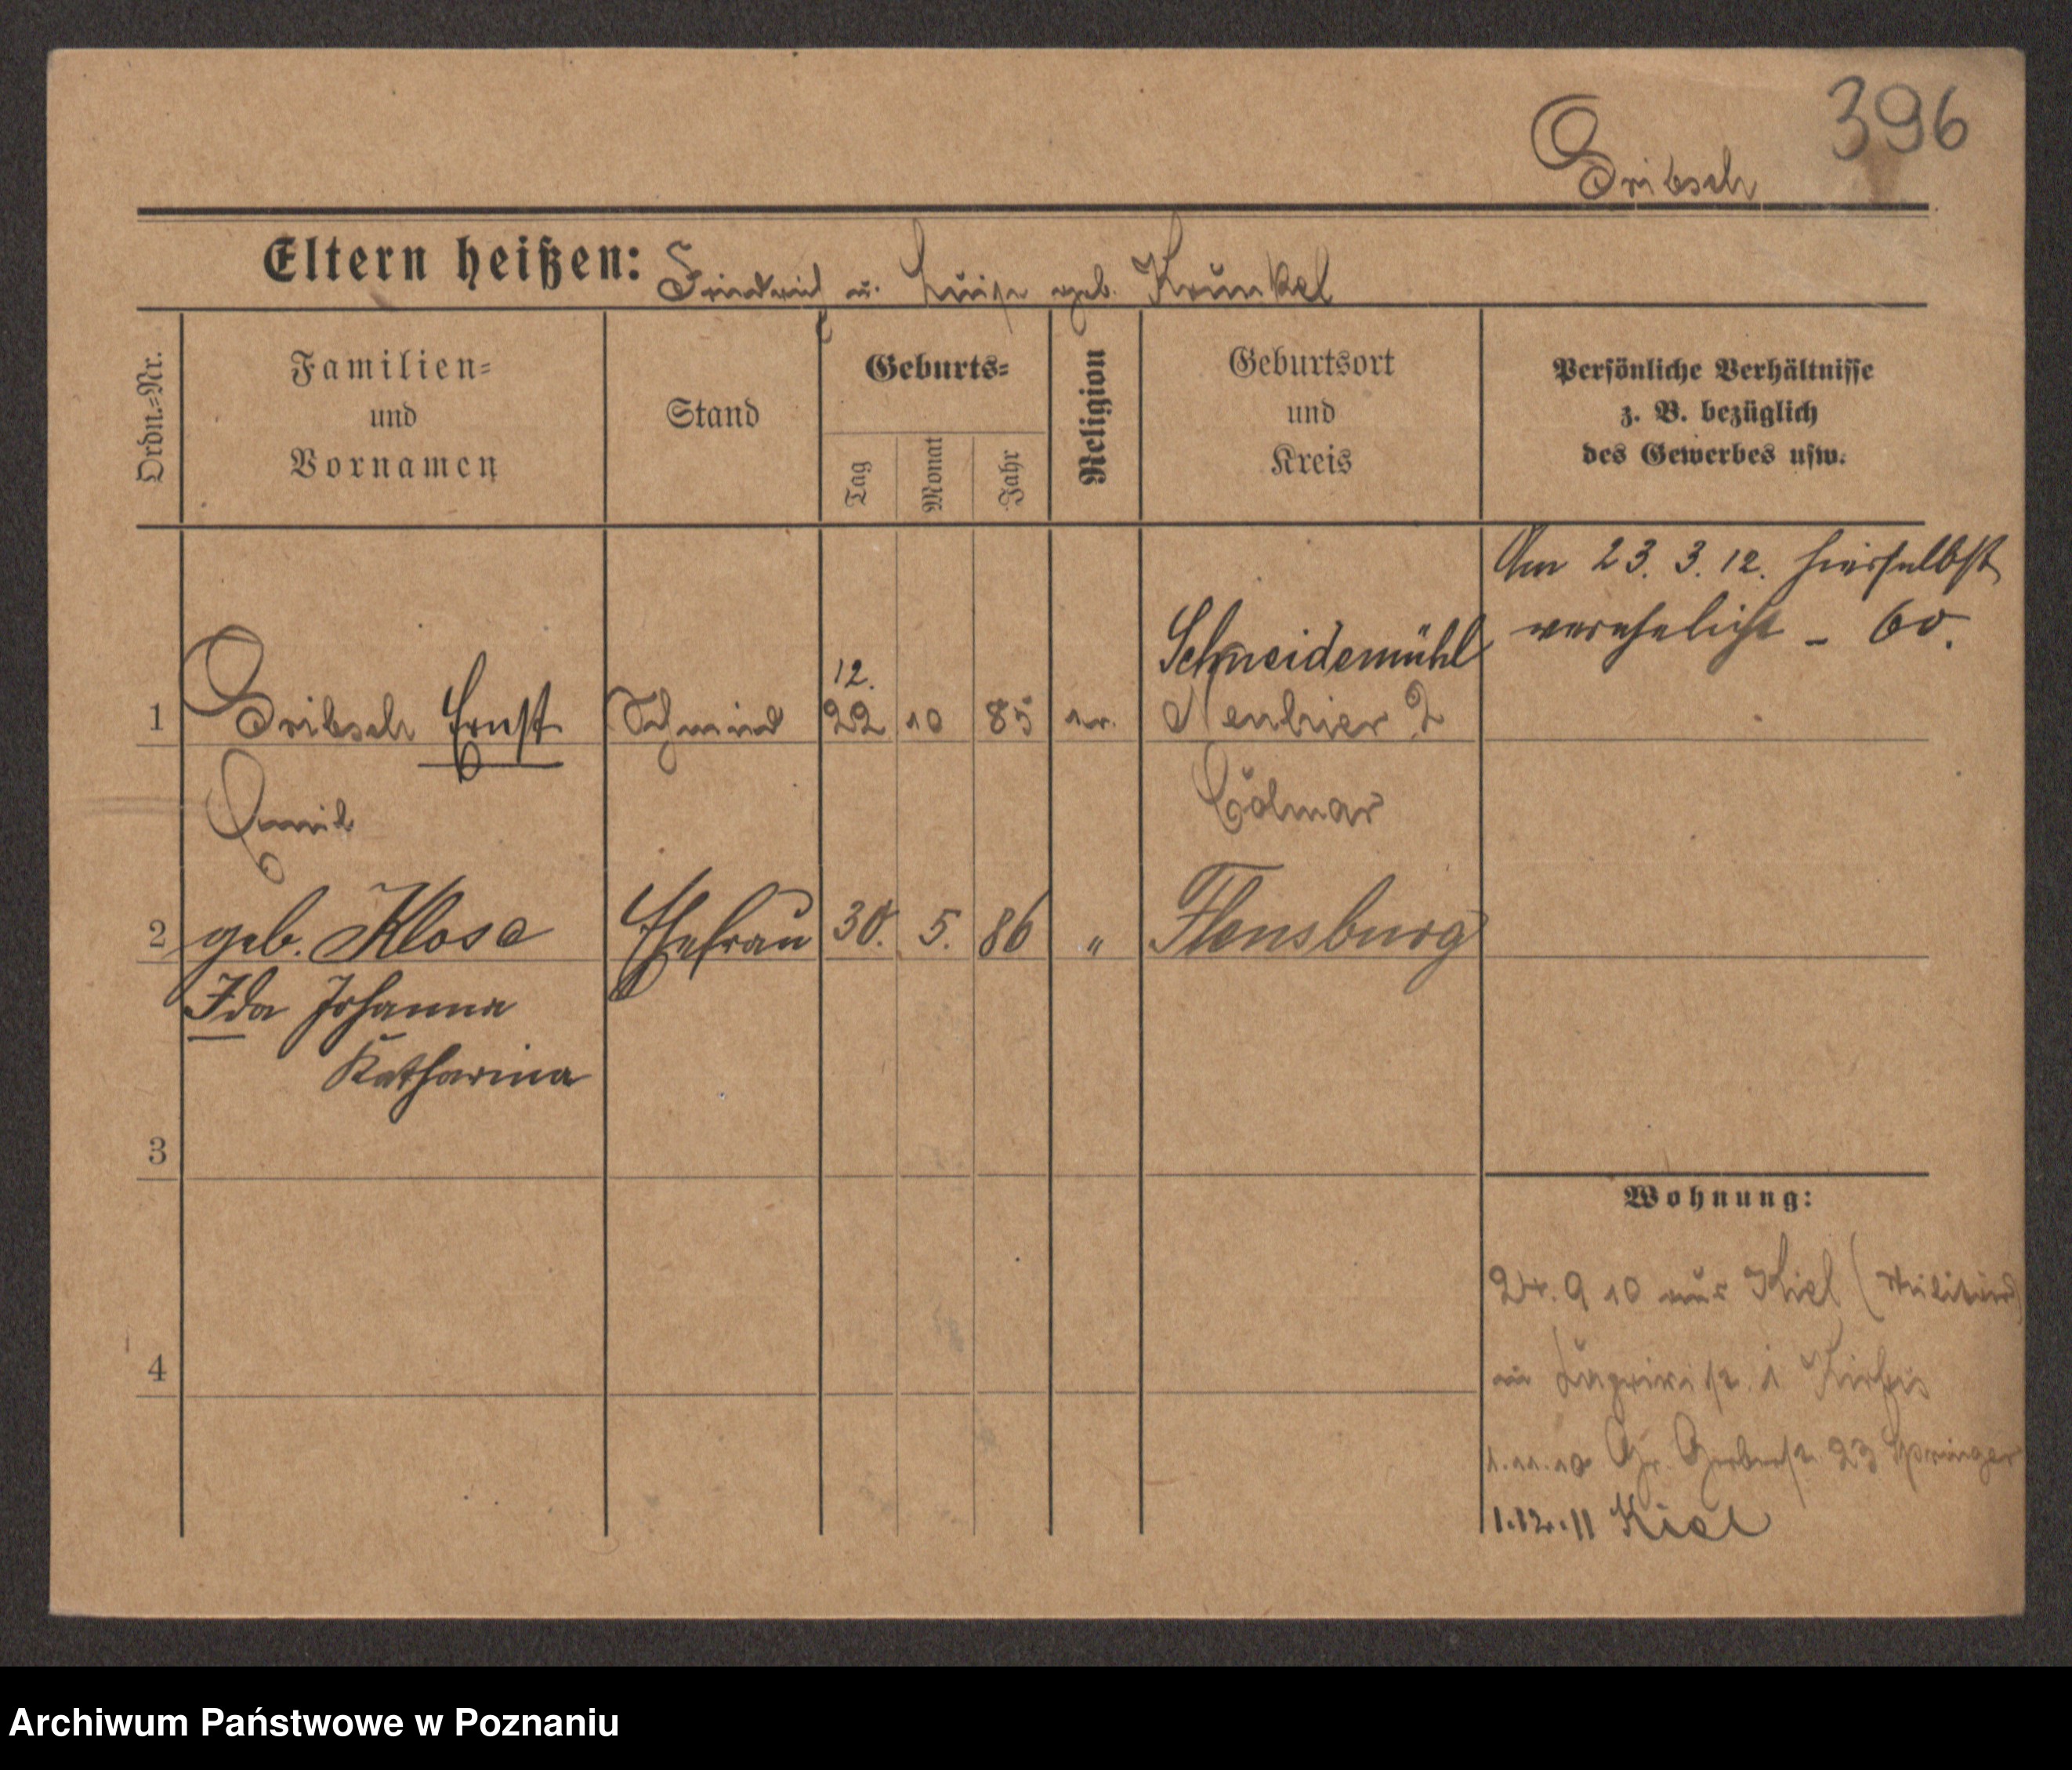 396
Gribsch
Eltern heißen: Friedrich u. Luise geb. Krunkel
Ordn.-Nr.
Familien- und Vornamen
Stand
Geburts-
Tag
Monat
Jahr
Religion
Geburtsort und Kreis
Persönliche Verhältnisse
z. B. bezüglich
des Gewerbes usw.
Am 23. 3. 12. hierselbst
verehelicht
Schneidemühl
12.
1 Gribsch Ernst Schmied 22 10 85 ev.
Emil Colmar
2 geb. Klose Ehefrau 30. 5. 86 " Flensburg
Ida Johanna
Katharina
3
Wohnung:
24. 9 10 aus Kiel (Militär)
4
1.11.10 Gr. Gerberstr. 23 Springer
1.12.11 Kiel
Archiwum Państwowe w Poznaniu